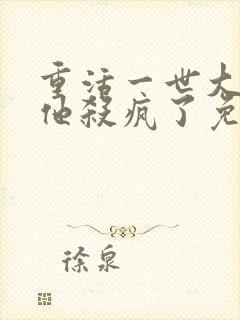 重活一世大
他杀疯了免
徐泉